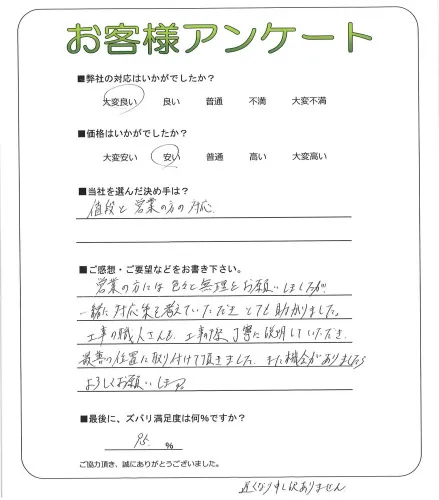 お客様アンケート
■弊社の対応はいかがでしたか？
大変良い 良い 普通 不満 大変不満
■価格はいかがでしたか？
大変安い 安い 普通 高い 大変高い
■当社を選んだ決め手は？
値段と営業の方の対応.
■ご感想・ご要望などをお書き下さい。
営業の方には色々と無理をお願いしましたが
一緒に対応策を考えていただきとても助かりました。
工事の職人さんも、工事の後、丁寧に説明していただき、
最善の位置に取り付けて頂きました。また機会がありましたら
よろしくお願いします
■最後に、ズバリ満足度は何%ですか？
95. %
ご協力頂き、誠にありがとうございました。
遅くなり申し訳ありません